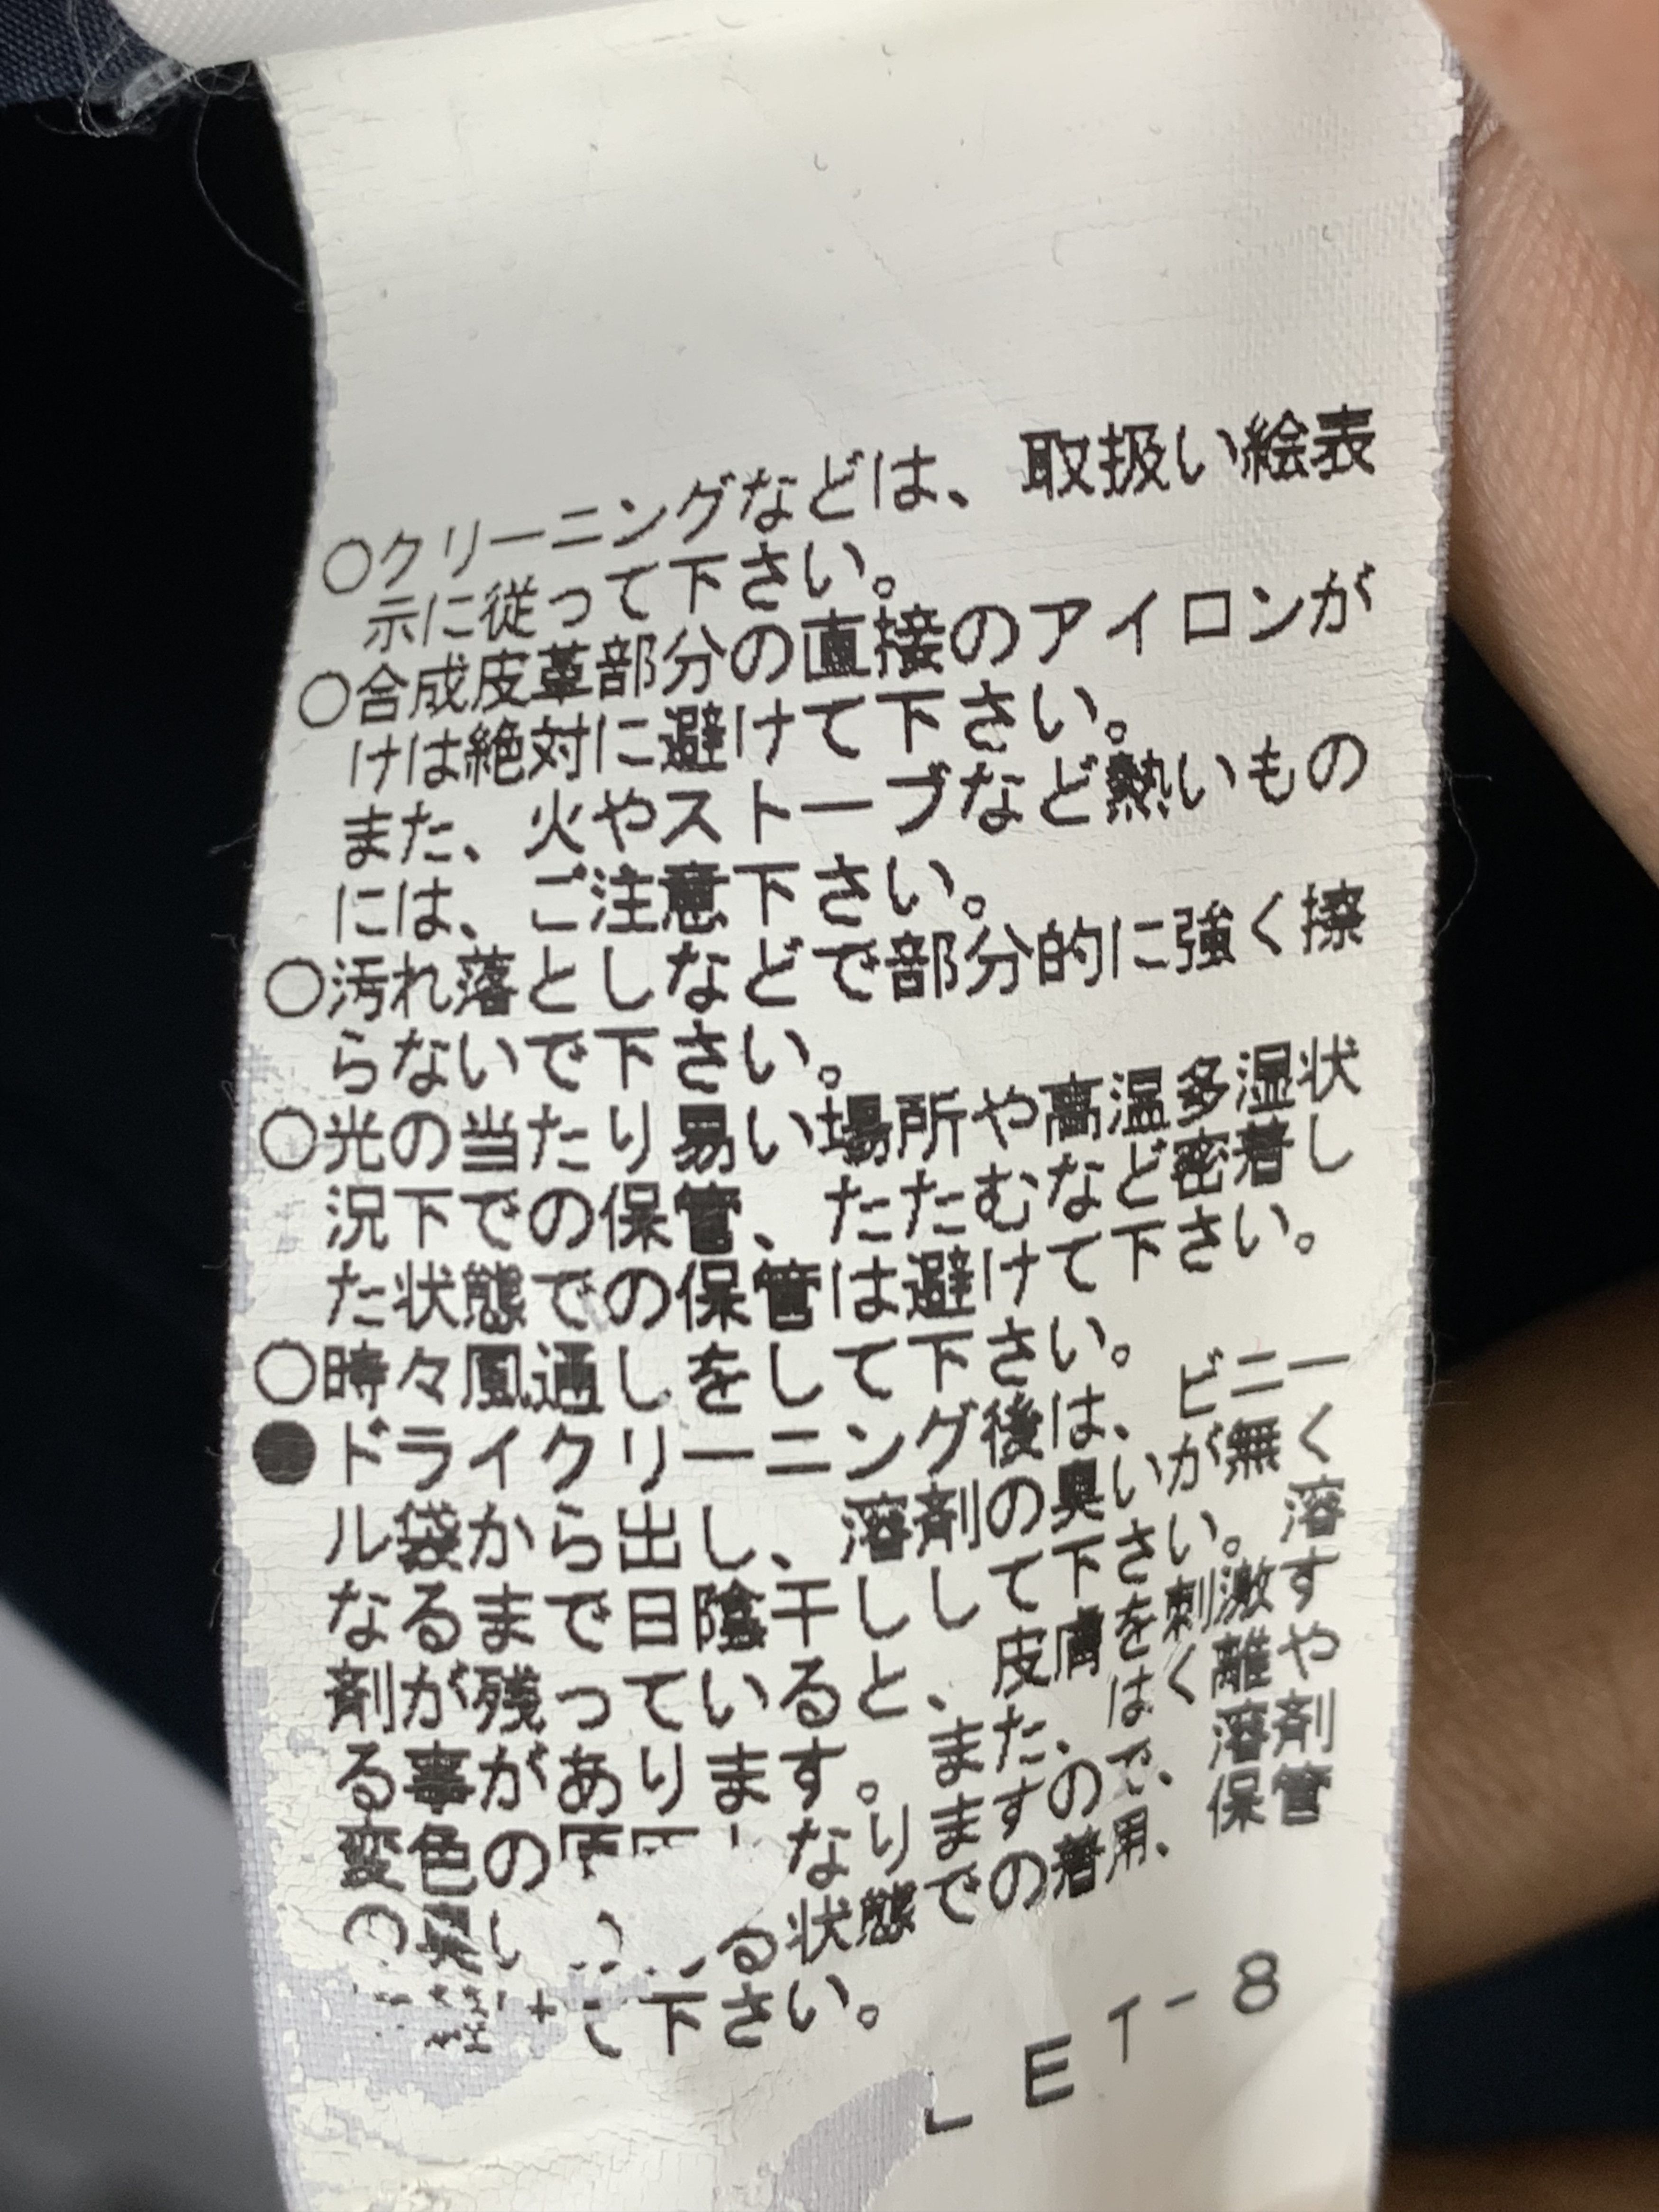 ○クリーニングなどは、取扱い絵表
示に従って下さい。
○合成皮革部分の直接のアイロンが
けは絶対に避けて下さい。
また、火やストーブなど熱いもの
には、ご注意下さい。
○汚れ落としなどで部分的に強く擦
らないで下さい。
○光の当たり易い場所や高温多湿状
況下での保管、たたむなど密着し
た状態での保管は避けて下さい。
○時々風通しをして下さい。
●ドライクリーニング後は、ビニー
ル袋から出し、溶剤の臭いが無く
なるまで日陰干しして下さい。溶
剤が残っていると、皮膚を刺激す
る事があります。また、はく離や
変色の なりますので、溶剤
状態での着用、保管
て下さい。
ET-8